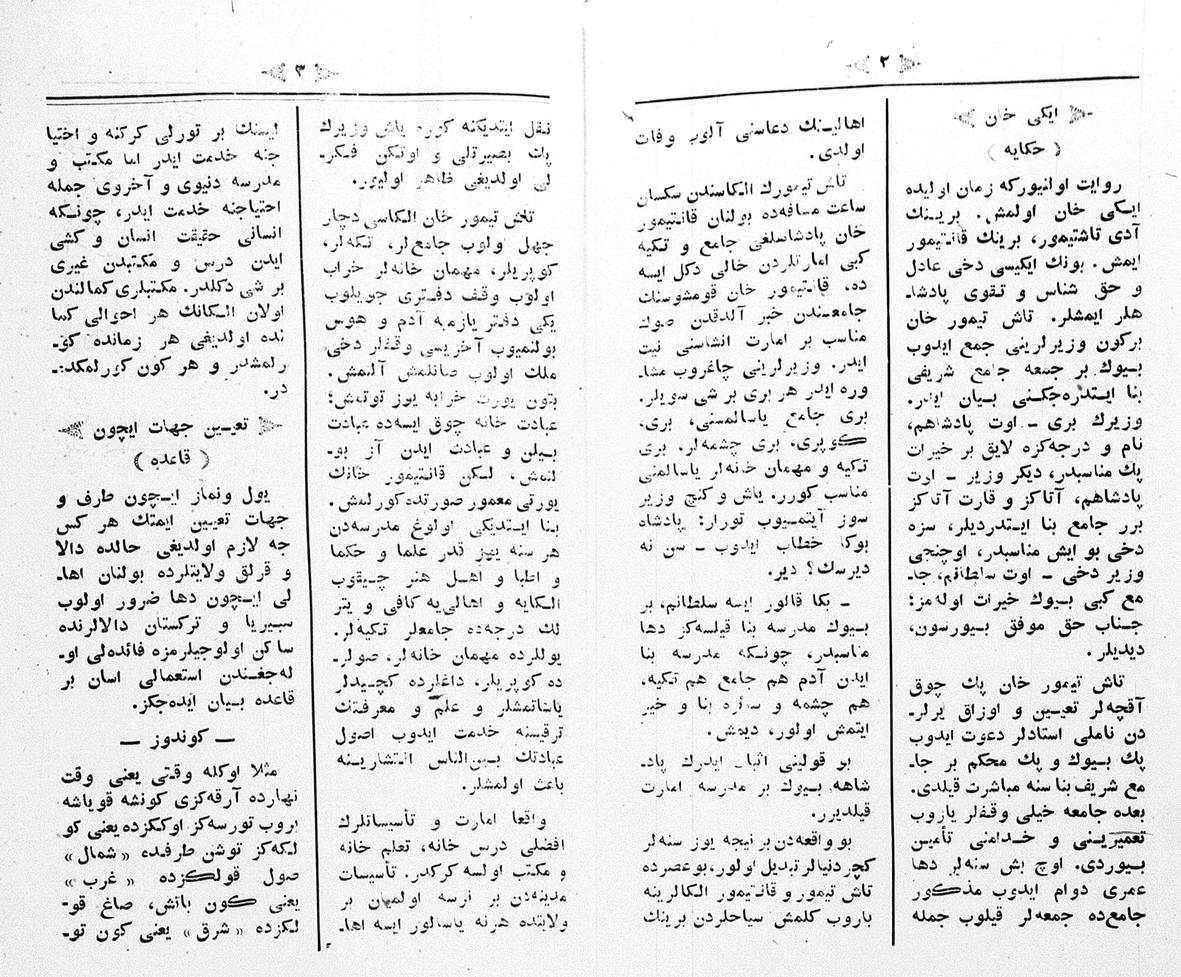 ٢
ایکی خان
( حکایه )
روایت اولنیورکه زمان اولیده
ایکی خان اولمش. برینك
آدی تاشتیمور، برینك قانتیمور
ایمش. بونك ایکیسی دخی عادل
و حق شناس و تقوی پادشا-
هلر ایمشلر. تاش تیمور خان
برکون وزیرلرینی جمع ایدوب
بیوك بر جمعه جامع شریفی
بنا ایتدره‌جکنی بیان ایدر.
وزیرك بری ـ اوت پادشاهم،
نام و درجه‌کزه لایق بر خیرات
پك مناسبدر، دیکر وزیر ـ اوت
پادشاهم، آتاکز و قارت آتاکز
برر جامع بنا ایتدردیلر، سزه
دخی بو ایش مناسبدر، اوچنجی
وزیر دخی ـ اوت سلطانم، جا-
مع کبی بیوك خیرات اوله‌مز؛
جناب حق موفق بیورسون،
دیدیلر.
تاش تیمور خان پك چوق
آقچه‌لر تعیین و اوزاق یرلر-
دن ناملی استادلر دعوت ایدوب
پك بیوك و پك محکم بر جا-
مع شریف بنا سنه مباشرت قیلدی.
بعده جامعه خیلی وقفلر یازوب
تعمیرینی و خدامنی تأمین
بیوردی. اوچ بش سنه‌لر دها
عمری دوام ایدوب مذکور
جامع‌ده جمعه‌لر قیلوب جمله
اهالینك دعاسنی آلوب وفات
اولدی.
تاش تیمورك الکاسندن سکسان
ساعت مسافه‌ده بولنان قانتیمور
خان پادشاهلغی جامع و تکیه
کبی امارتلردن خالی دکل ایسه
ده، قانتیمور خان قومشوسنك
جامعندن خبر آلدقدن صوك
مناسب بر امارت انشاسنی نیت
ایدر. وزیرلرینی چاغروب مشا-
وره ایدر هر بری بر شی سویلر.
بری جامع یاسالمسنی، بری،
کوپری، بری چشمه‌لر. بری
تکیه و مهمان خانه‌لر یاسالمنی
مناسب کورر. یاش و کنج وزیر
سوز آیتمیوب تورار: پادشاه
بوکا خطاب ایدوب ـ سن نه
دیرسك؟ دیر.
ـ بکا قالور ایسه سلطانم، بر
بیوك مدرسه بنا قیلسه‌کز دها
مناسبدر، چونکه مدرسه بنا
ایدن آدم هم جامع هم تکیه،
هم چشمه و سائره بنا و خیر
ایتمش اولور، دیمش.
بو قولینی اثبات ایدرك پاد-
شاهه بیوك بر مدرسه امارت
قیلدیرر.
بو واقعه‌دن بر نیجه یوز سنه‌لر
کچر دنیالر تبدیل اولور، بو عصرده
تاش تیمور و قانتیمور الکالرینه
باروب کلمش سیاحلردن برینك
٣
نقل ایتدیکنه کوره یاش وزیرك
پك بصیرتلی و اوتکن فکر-
لی اولدیغی ظاهر اولیور.
تاش تیمور خان الکاسی دچار
جهل اولوب جامع‌لر، تکیه‌لر،
کوپریلر، مهمان خانه‌لر خراب
اولوب وقف دفتری جویلوب
یکی دفتر یازمه آدم و هوس
بولنمیوب آخریسی وقفلر دخی
ملك اولوب صانلمش آلنمش.
بتون یورت خرابه یوز توتمش؛
عبادت خانه چوق ایسه‌ده عبادت
بیلن و عبادت ایدن آز بو-
لنمش، لکن قانتیمور خانك
یورتی معمور صورتده کورلمش.
بنا ایتدیکی اولوغ مدرسه‌دن
هر سنه یوز قدر علما و حکما
و اطبا و اهل هنر چیقوب
الکایه و اهالی‌یه کافی و یتر
لك درجه‌ده جامعلر تکیه‌لر.
یوللرده مهمان خانه‌لر، صولر-
ده کوپریلر، داغلرده کچیدلر
یاشاتمشلر و علم و معرفتك
ترقیسنه خدمت ایدوب اصول
عبادتك بین‌الناس انتشارینه
باعث اولمشلر.
واقعا امارت و تأسیساتلرك
افضلی درس خانه، تعلم خانه
و مکتب اولسه کرکدر. تأسیسات
مدینه‌دن بر نرسه اولمیان بر
ولایتده هرنه یاسالور ایسه اها-
لیسنك بر تورلی کرکنه و احتیا
جنه خدمت ایدر اما مکتب و
مدرسه دنیوی و آخروی جمله
احتیاجنه خدمت ایدر، چونکه
انسانی حقیقت انسان و کشی
ایدن درس و مکتبدن غیری
بر شی دکلدر. مکتبلری کمالندن
اولان الکانك هر احوالی کما
نده اولدیغی هر زمانده کو-
رلمشدر و هر کون کورلمکده-
در.
تعیین جهات ایچون
( قاعده )
یول ونماز ایچون طرف و
جهات تعیین ایمتك هر کس
جه لازم اولدیغی حالده دالا
و قرلق ولایتلرده بولنان اها-
لی ایچون دها ضرور اولوب
سیبریا و ترکستان دالالرنده
ساکن اولوجیلرمزه فائده‌لی او-
له‌جغندن استعمالی اسان بر
قاعده بیان ایده‌جکز.
— کوندوز —
مثلا اوکله وقتی یعنی وقت
نهارده آرقه‌کزی کونشه قویاشه
بروب تورسه‌کز اوککزده یعنی کو
لکه‌کز توشن طرفده «شمال»
صول قولکزده «غرب»
یعنی کون باتش، صاغ قو-
لکزده «شرق» یعنی کون تو-